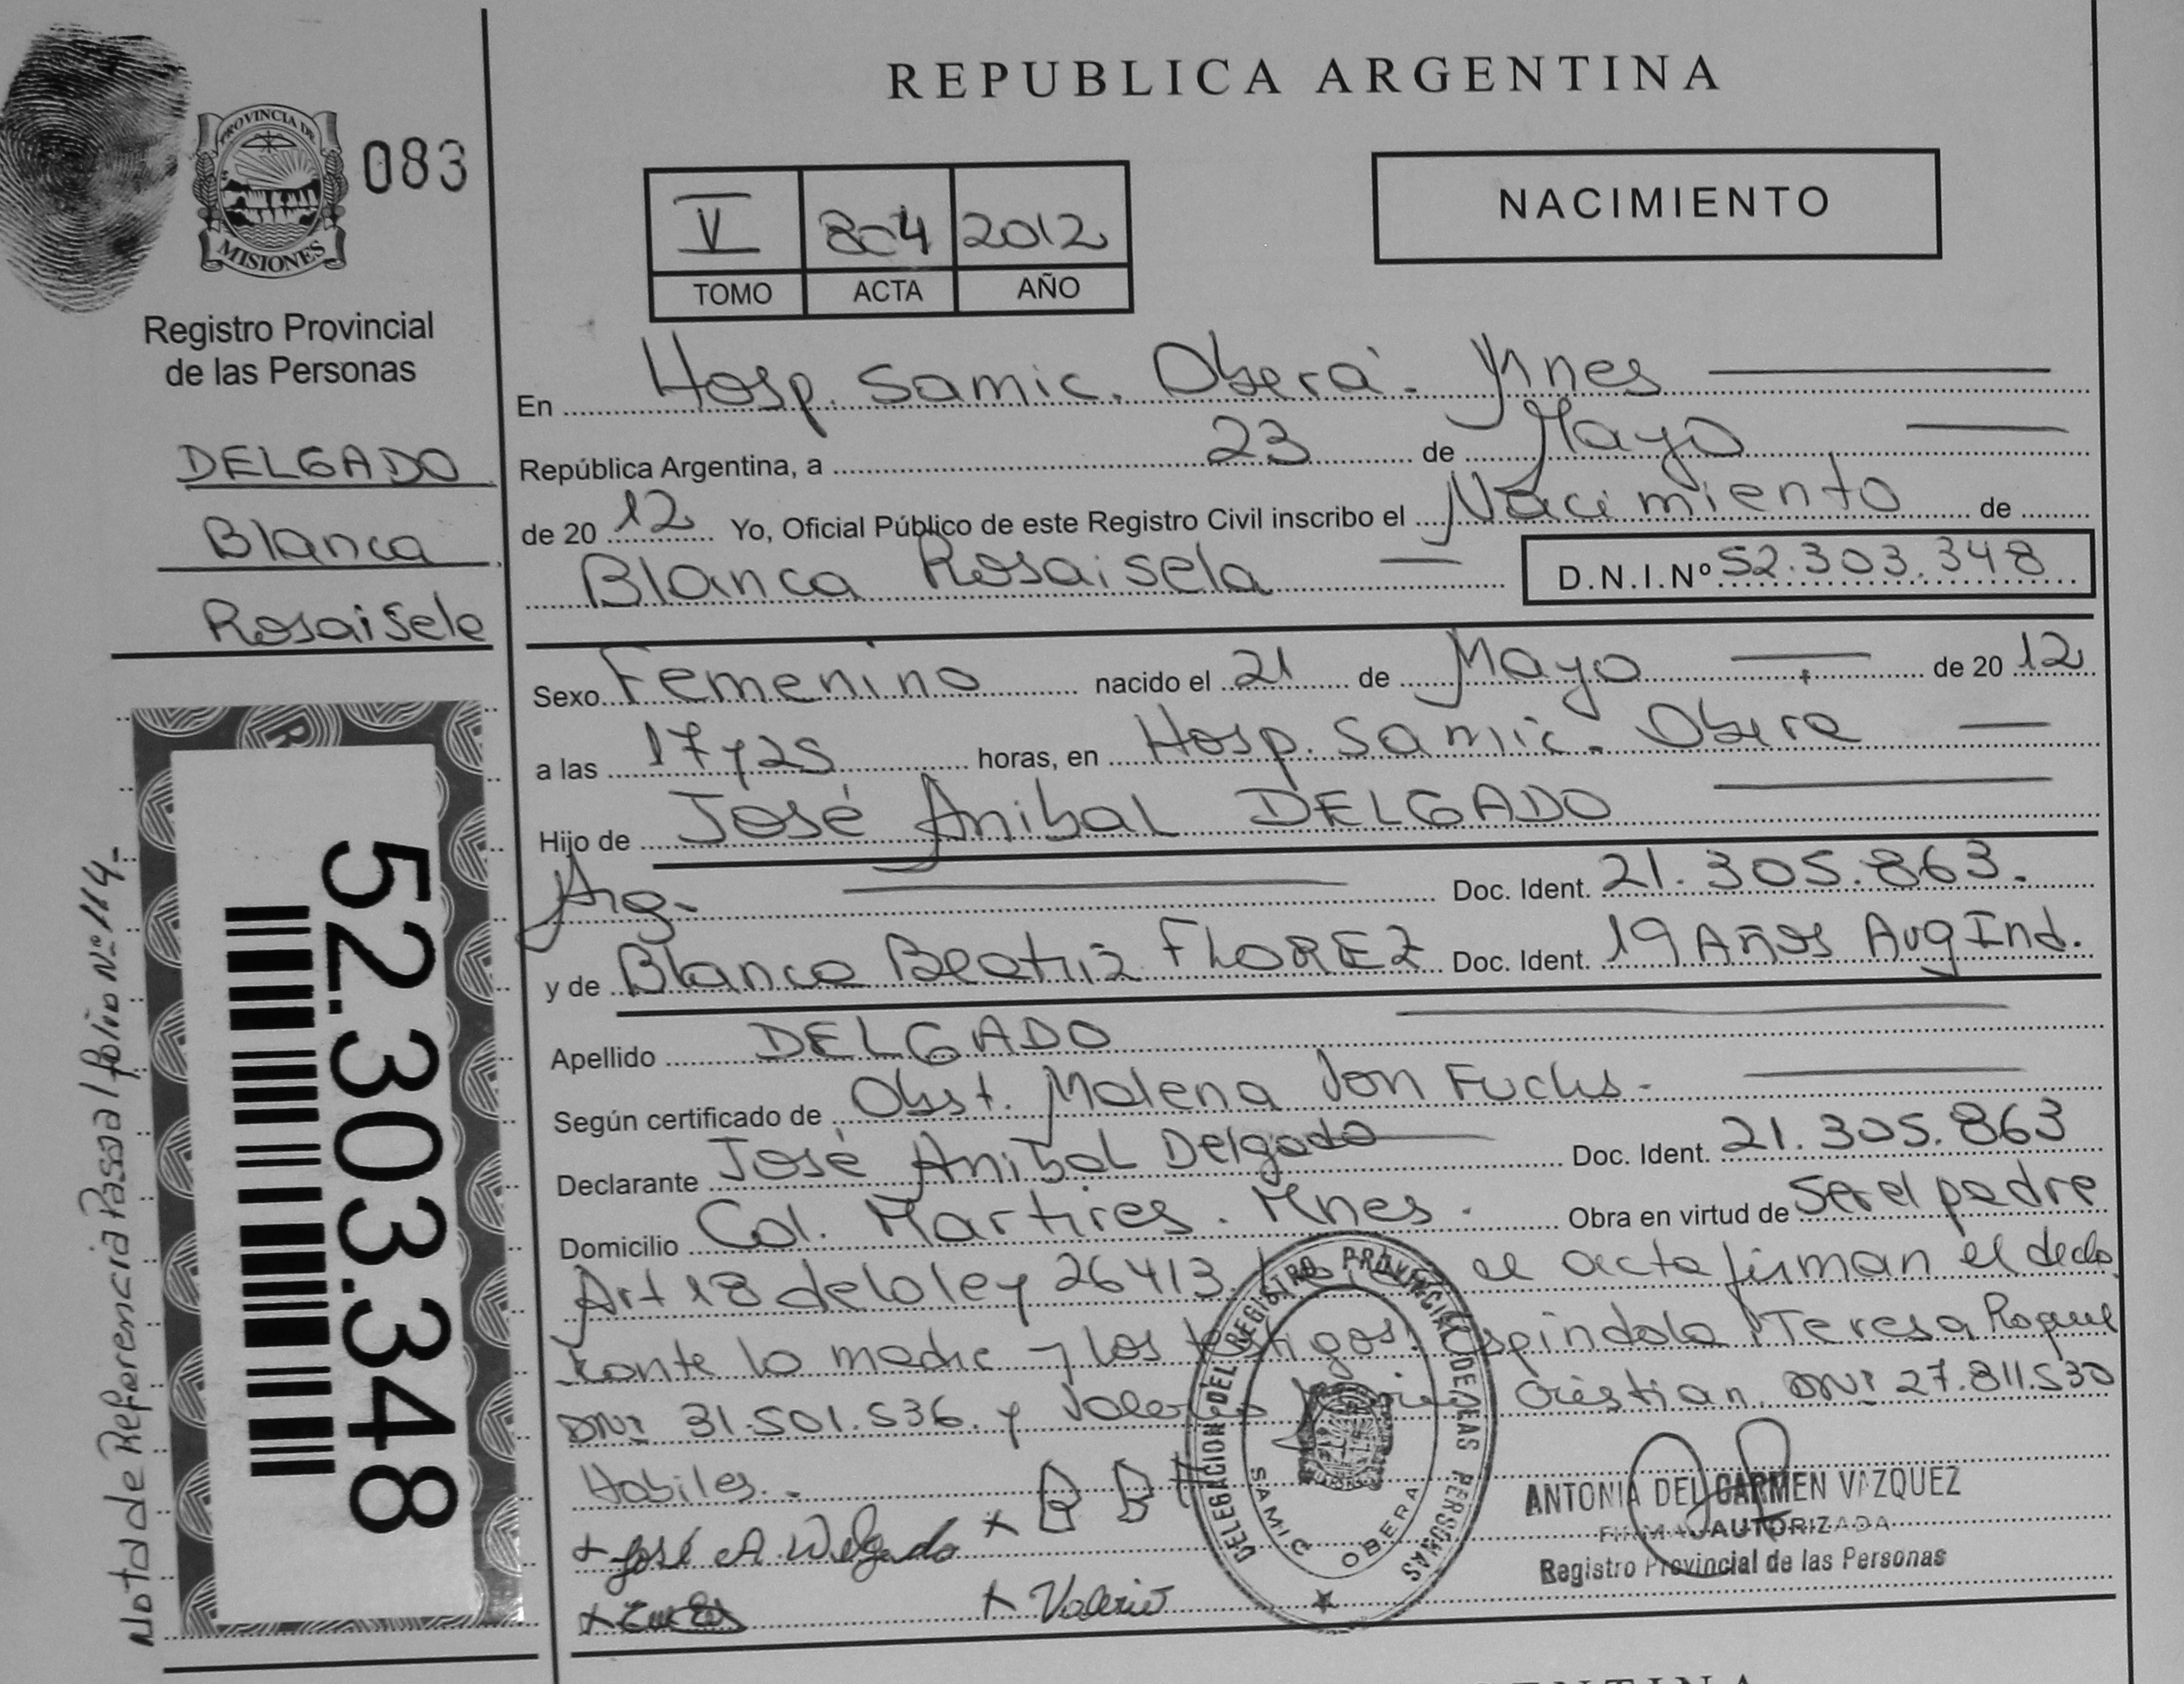 REPUBLICA ARGENTINA
PROVINCIA DE
MISIONES
083
Registro Provincial
de las Personas
DELGADO
Blanca
Rosaisela
52.303.348
Nota de Referencia Pasa al folio Nº 114.-
V 804 2012
TOMO ACTA AÑO
NACIMIENTO
En Hosp. Samic. Oberá. Mnes
República Argentina, a 23 de Mayo
de 20 12 Yo, Oficial Público de este Registro Civil inscribo el Nacimiento de
Blanca Rosaisela D.N.I.Nº 52.303.348
Sexo Femenino nacido el 21 de Mayo de 20 12
a las 17 y 25 horas, en Hosp. Samic. Obera
Hijo de José Anibal DELGADO
Arg. Doc. Ident. 21.305.863.
y de Blanca Beatriz FLOREZ Doc. Ident. 19 Años Arg Ind.
Apellido DELGADO
Según certificado de Obst. Malena Von Fuchs.
Declarante José Anibal Delgado Doc. Ident. 21.305.863
Domicilio Col. Martires. Mnes. Obra en virtud de ser el padre
Art 18 de la ley 26413. el acta firman el decla
rante la madre y los testigos. Espindola, Teresa Raquel
DNI 31.501.536. y Cristian DNI 27.811.530
Habiles.-
+ José A. Delgado + B B
+ + Valerio
DELEGACION DEL REGISTRO PROVINCIAL DE LAS PERSONAS
SAMIC OBERA
ANTONIA DEL CARMEN VAZQUEZ
FIRMA AUTORIZADA
Registro Provincial de las Personas